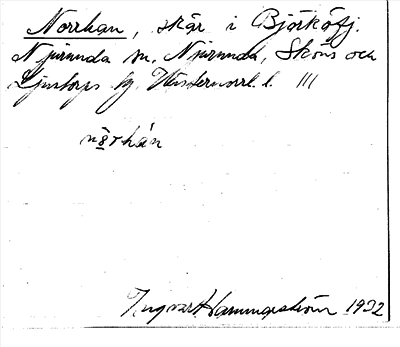 Norrhan, skär i Björköfj.
Njurunda sn. Njurunda, Sköns och
Ljustorps tg. Västernorrl. l. III
nǫ̈rhán
Ingvar Hammarström 1932